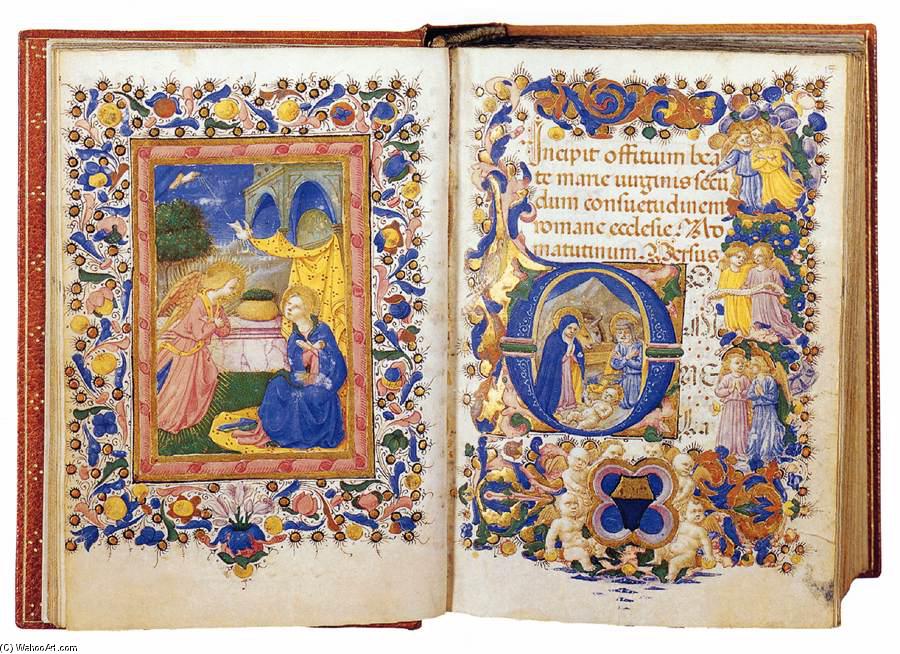 Incipit offitium bea
te marie virginis secu
dum consuetudinem
romane ecclesie. Ad
matutinum. Versus
D
(C) WahooArt.com